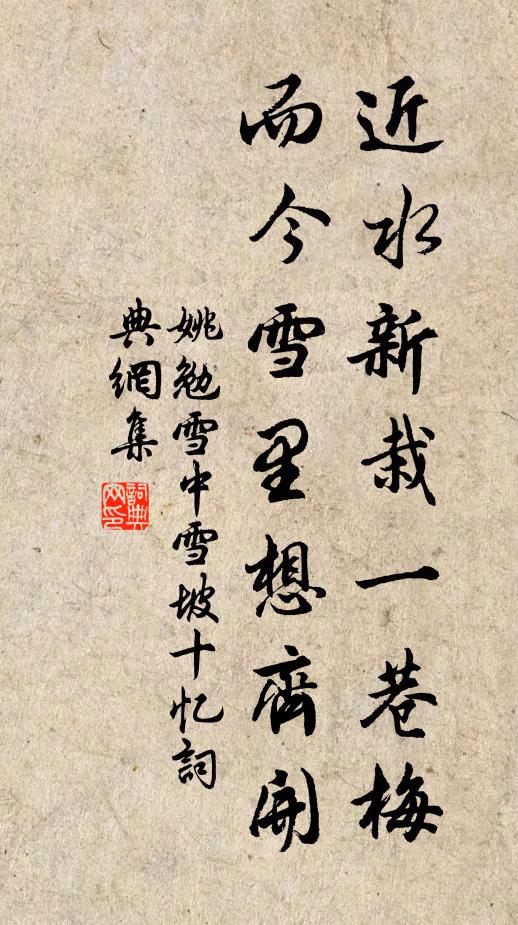 近水新栽一巷梅
而今雪里想齊開
姚勉雪中雪坡十忆詞
典網集
詞典
网印